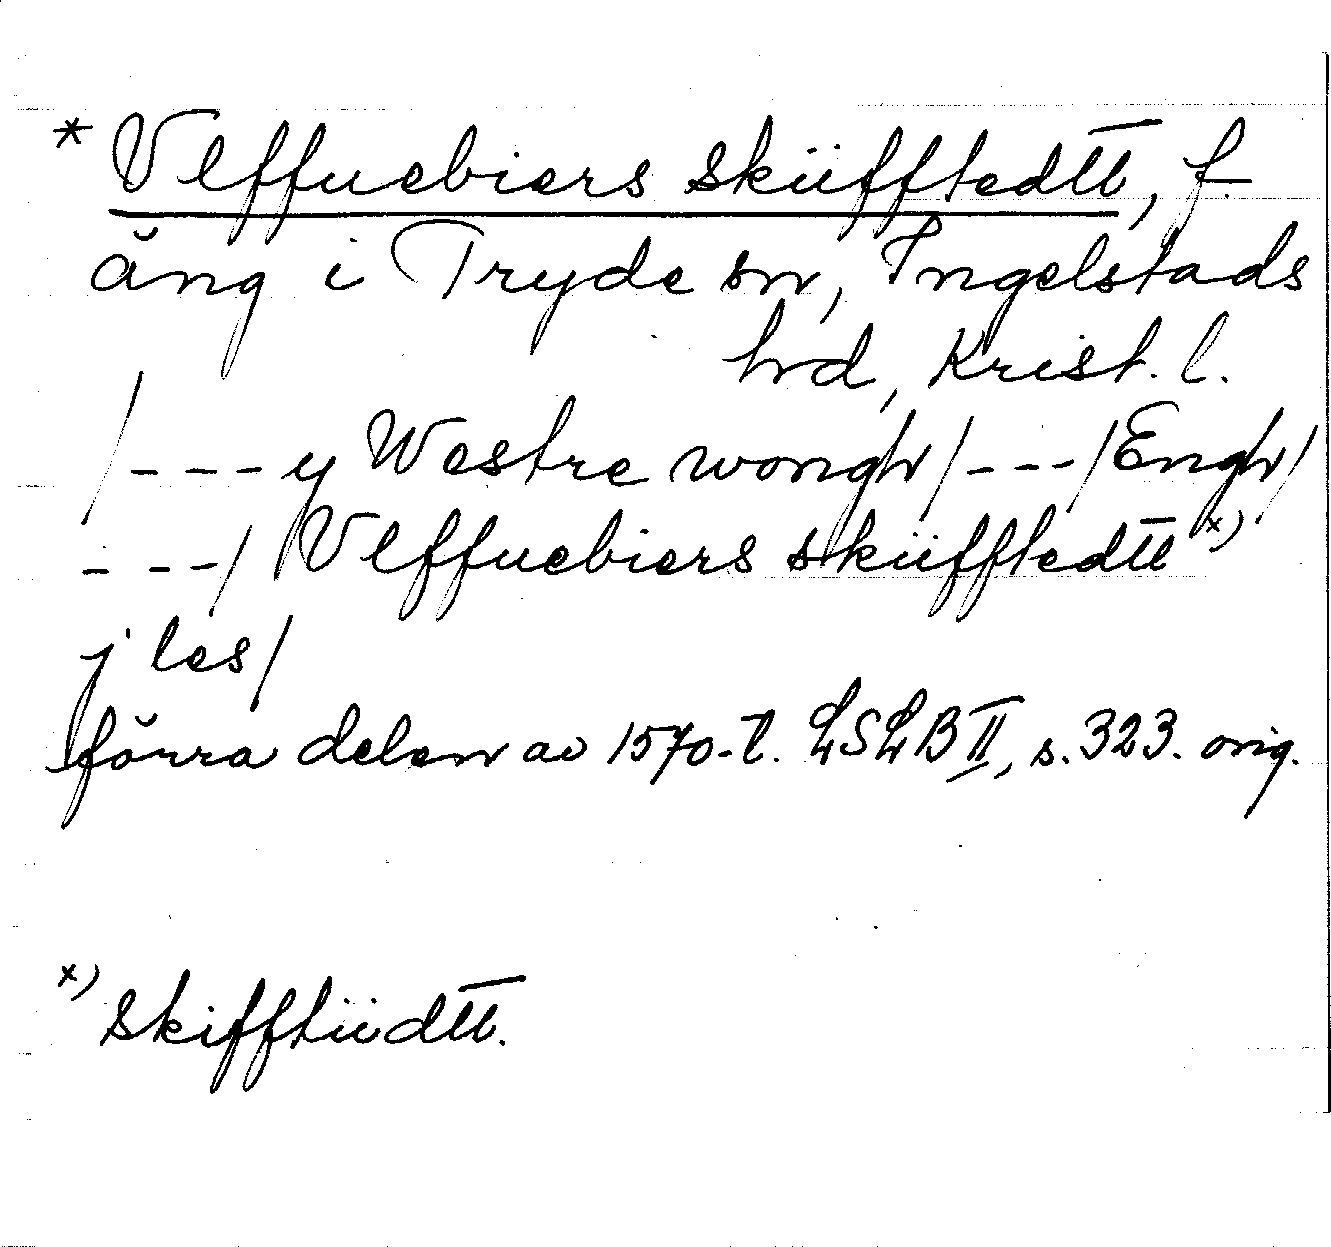 * Vlffuebiers sküfftedtt, f.
äng i Tryde sn, Ingelstads
hd, Krist. l.
/---y Westre wongh/---/Engh/
---/ Vlffuebiers sküfftedtt x)
j les/
förra delen av 1570-t. LSLB II, s. 323. orig.
x) skifftüdtt.